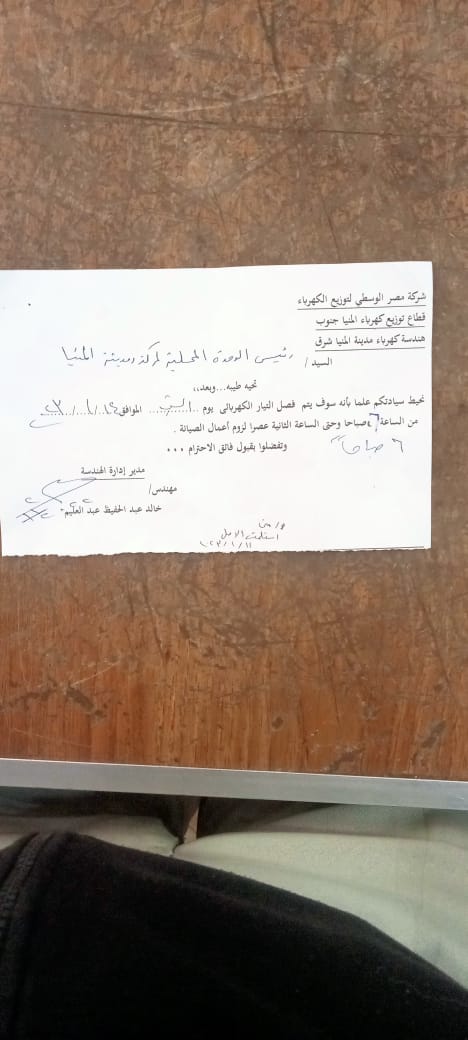 شركة مصر الوسطي لتوزيع الكهرباء
قطاع توزيع كهرباء المنيا جنوب
هندسة كهرباء مدينة المنيا شرق
السيد / رئيس الوحدة المحلية لمركز ومدينة المنيا
تحيه طيبه...وبعد،،
نحيط سيادتكم علما بأنه سوف يتم فصل التيار الكهربائى يوم السبت الموافق
من الساعة ٦ صباحا وحتى الساعة الثانية عصرا لزوم أعمال الصيانة .
٦ صباحاً
وتفضلوا بقبول فائق الاحترام ...
مدير إدارة الهندسة
مهندس/
خالد عبد الحفيظ عبد العليم
استلمت الاصل